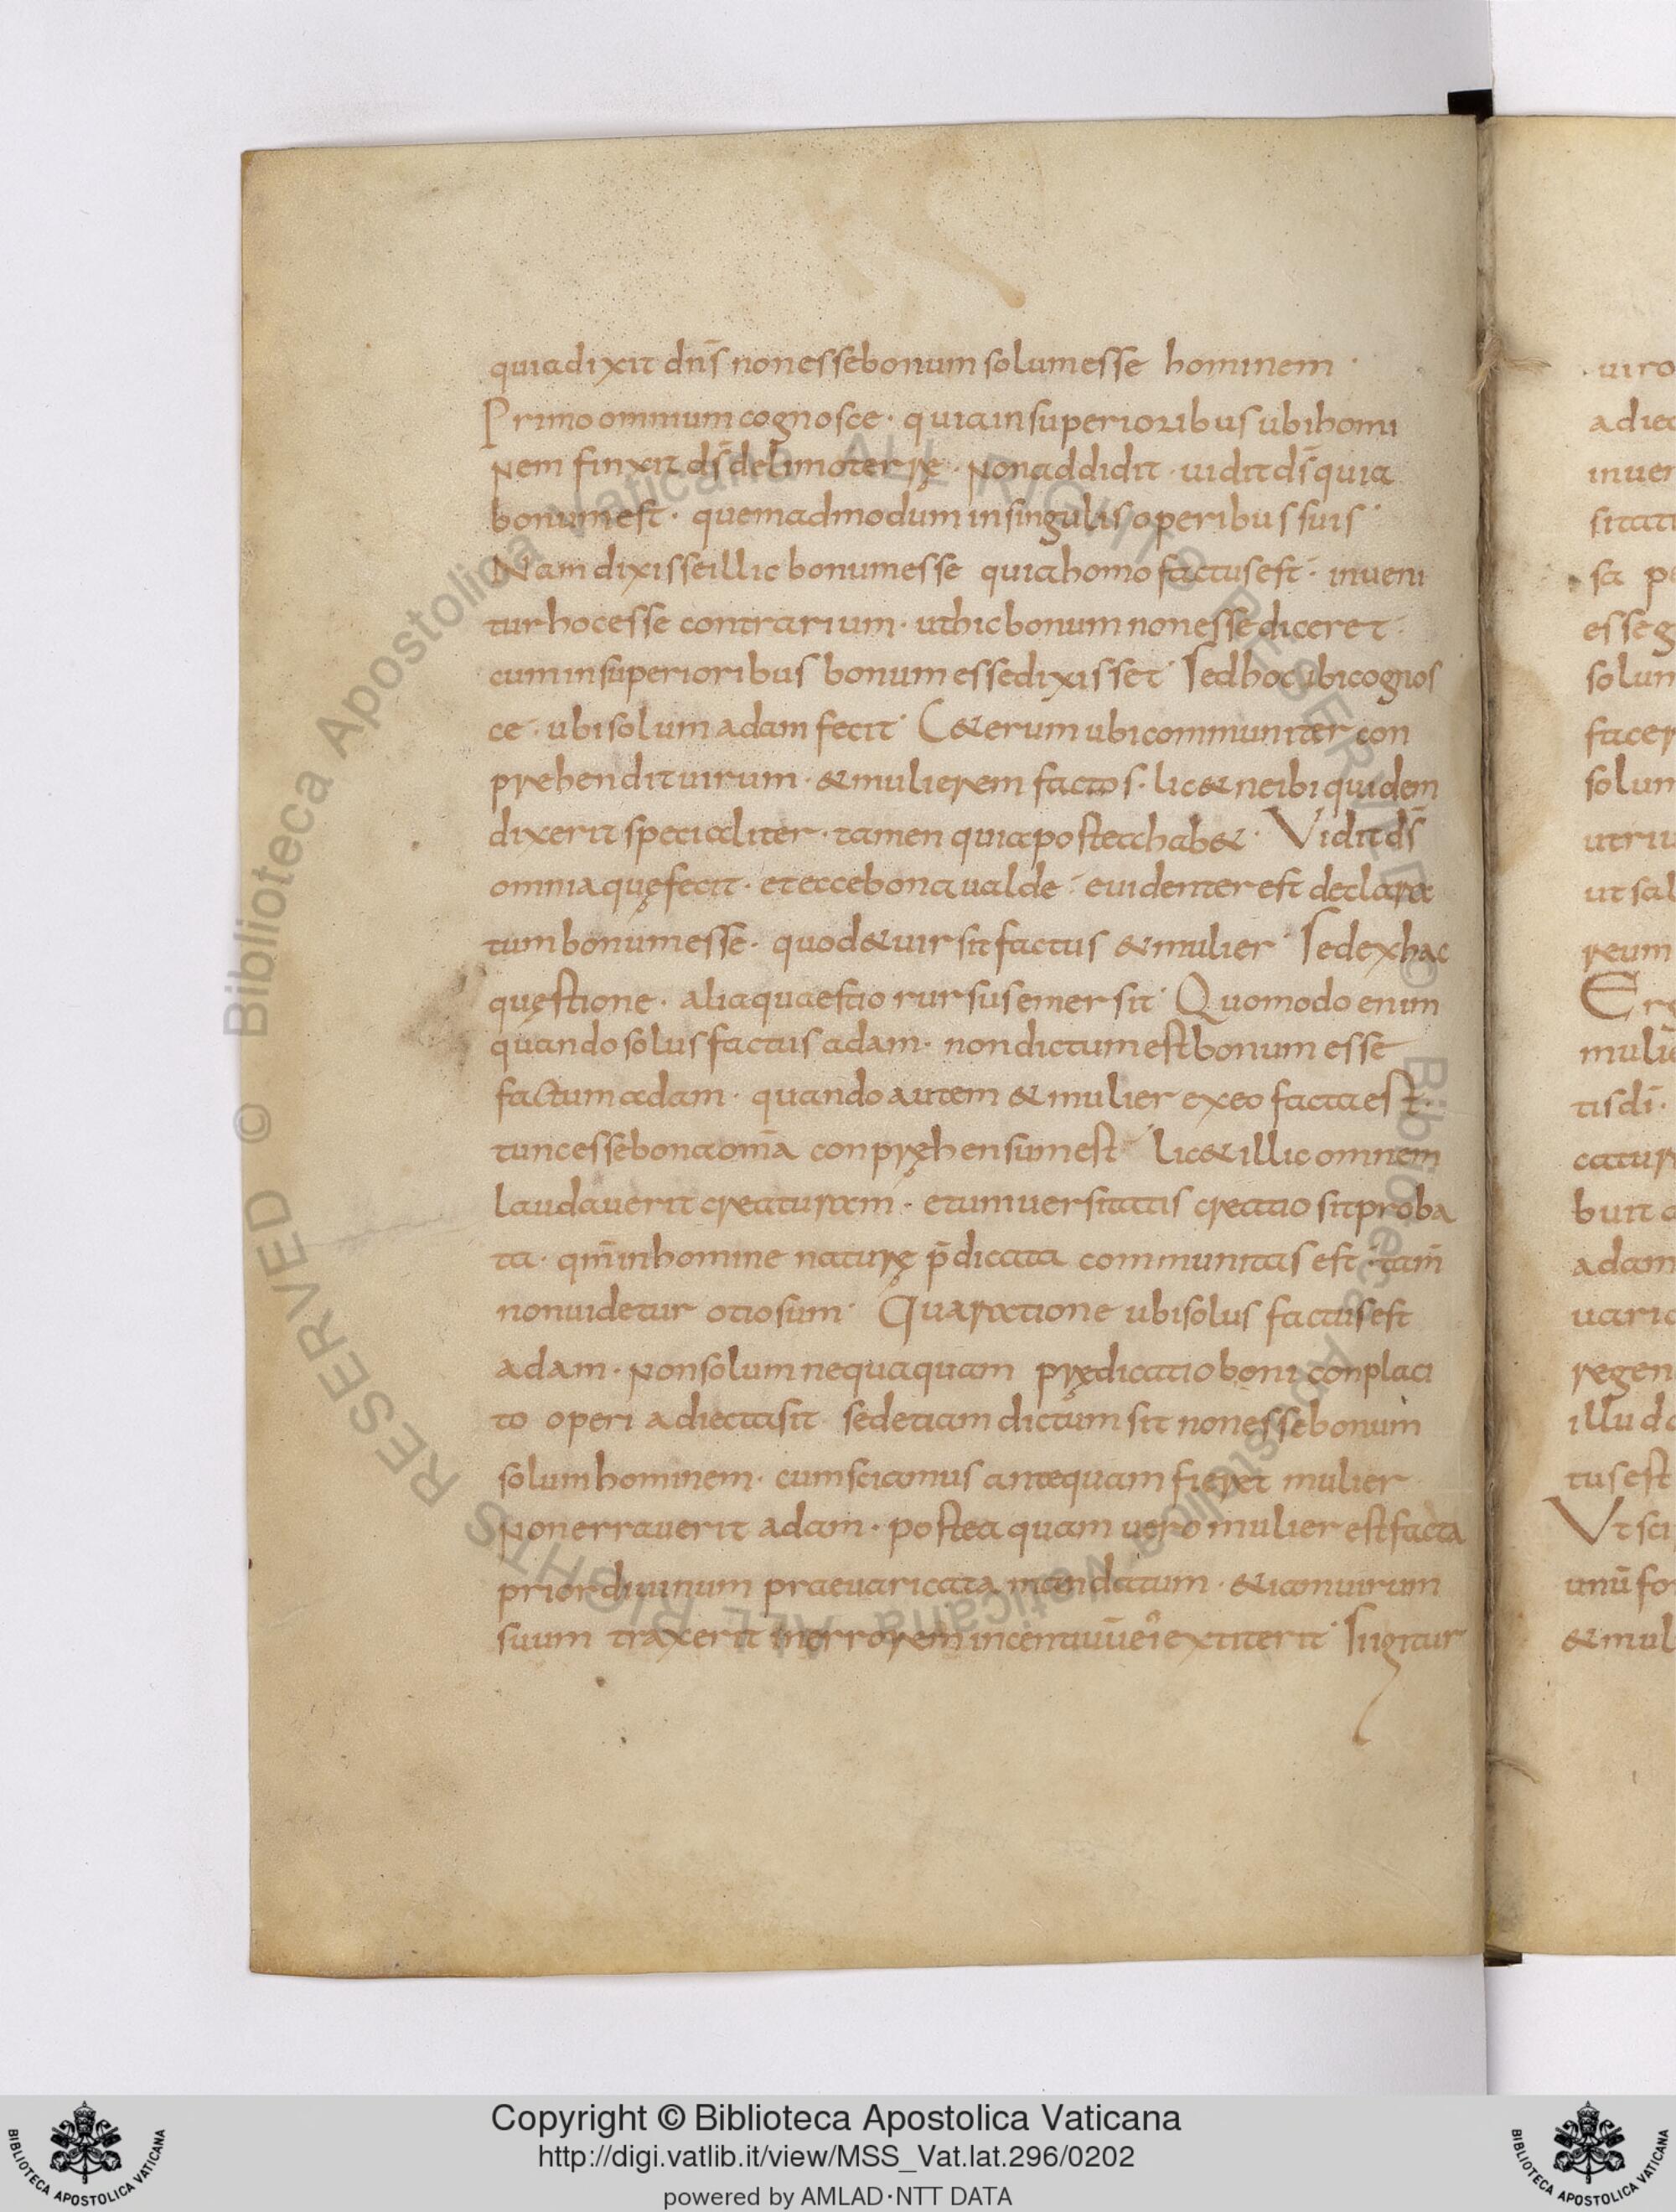 quia dixit dn̄s non esse bonum solum esse hominem ·
Primo omnium cognosce · quia in superioribus ubi homi
nem finxit ds̄ de limo terrę · non addidit · uidit ds̄ quia
bonum est · quemadmodum in singulis operibus suis ·
Nam dixisse illic bonum esse quia homo factus est · inueni
tur hoc esse contrarium · ut hic bonum non esse diceret ·
cum in superioribus bonum esse dixisset · Sed hoc ibi cognos
ce · ubi solum adam fecit · C&erum ubi communiter con
prehendit uirum · & mulierem factos · lic& ne ibi quidem
dixerit specialiter · tamen quia postea hab& · Vidit ds̄
omnia quę fecit · et ecce bona ualde · euidenter est declara
tum bonum esse · quod & uir sit factus & mulier · Sed ex hac
quęstione · alia quaestio rursus emersit · Quomodo enim
quando solus factus adam · non dictum est bonum esse
factum adam · quando autem & mulier ex eo facta est ·
tunc esse bona om̄a conpręhensum est · lic& illic omnem
laudauerit creaturam · et uniuersitatis creatio sit proba
ta · qm̄ in homine naturę p̄dicata communitas est · tam̄
non uidetur otiosum · Qua ratione ubi solus factus est
adam · non solum nequaquam prędicatio boni conplaci
to operi adiecta sit · sed etiam dictum sit non esse bonum
solum hominem · cum sciamus antequam fieret mulier
non errauerit adam · postea quam uero mulier est facta
prior diuinum praeuaricata mandatum · & iam uirum
suum traxerit in errorem incentiuū ei extiterit · Si igitur
uiro
adiec
inuen
sitati
sa
esse g
solum
facer
solum
utriu
ut sal
reum
Erg
mulie
tis dī ·
catur
buit
adam
uaric
regen
illud
tus est
Vt sci
unū fo
& mul
© Biblioteca Apostolica Vaticana ALL RIGHTS RESERVED © Biblioteca Apostolica Vaticana ALL RIGHTS RESERVED
BIBLIOTECA APOSTOLICA VATICANA
Copyright © Biblioteca Apostolica Vaticana
http://digi.vatlib.it/view/MSS_Vat.lat.296/0202
powered by AMLAD·NTT DATA
BIBLIOTECA APOSTOLICA VATICANA